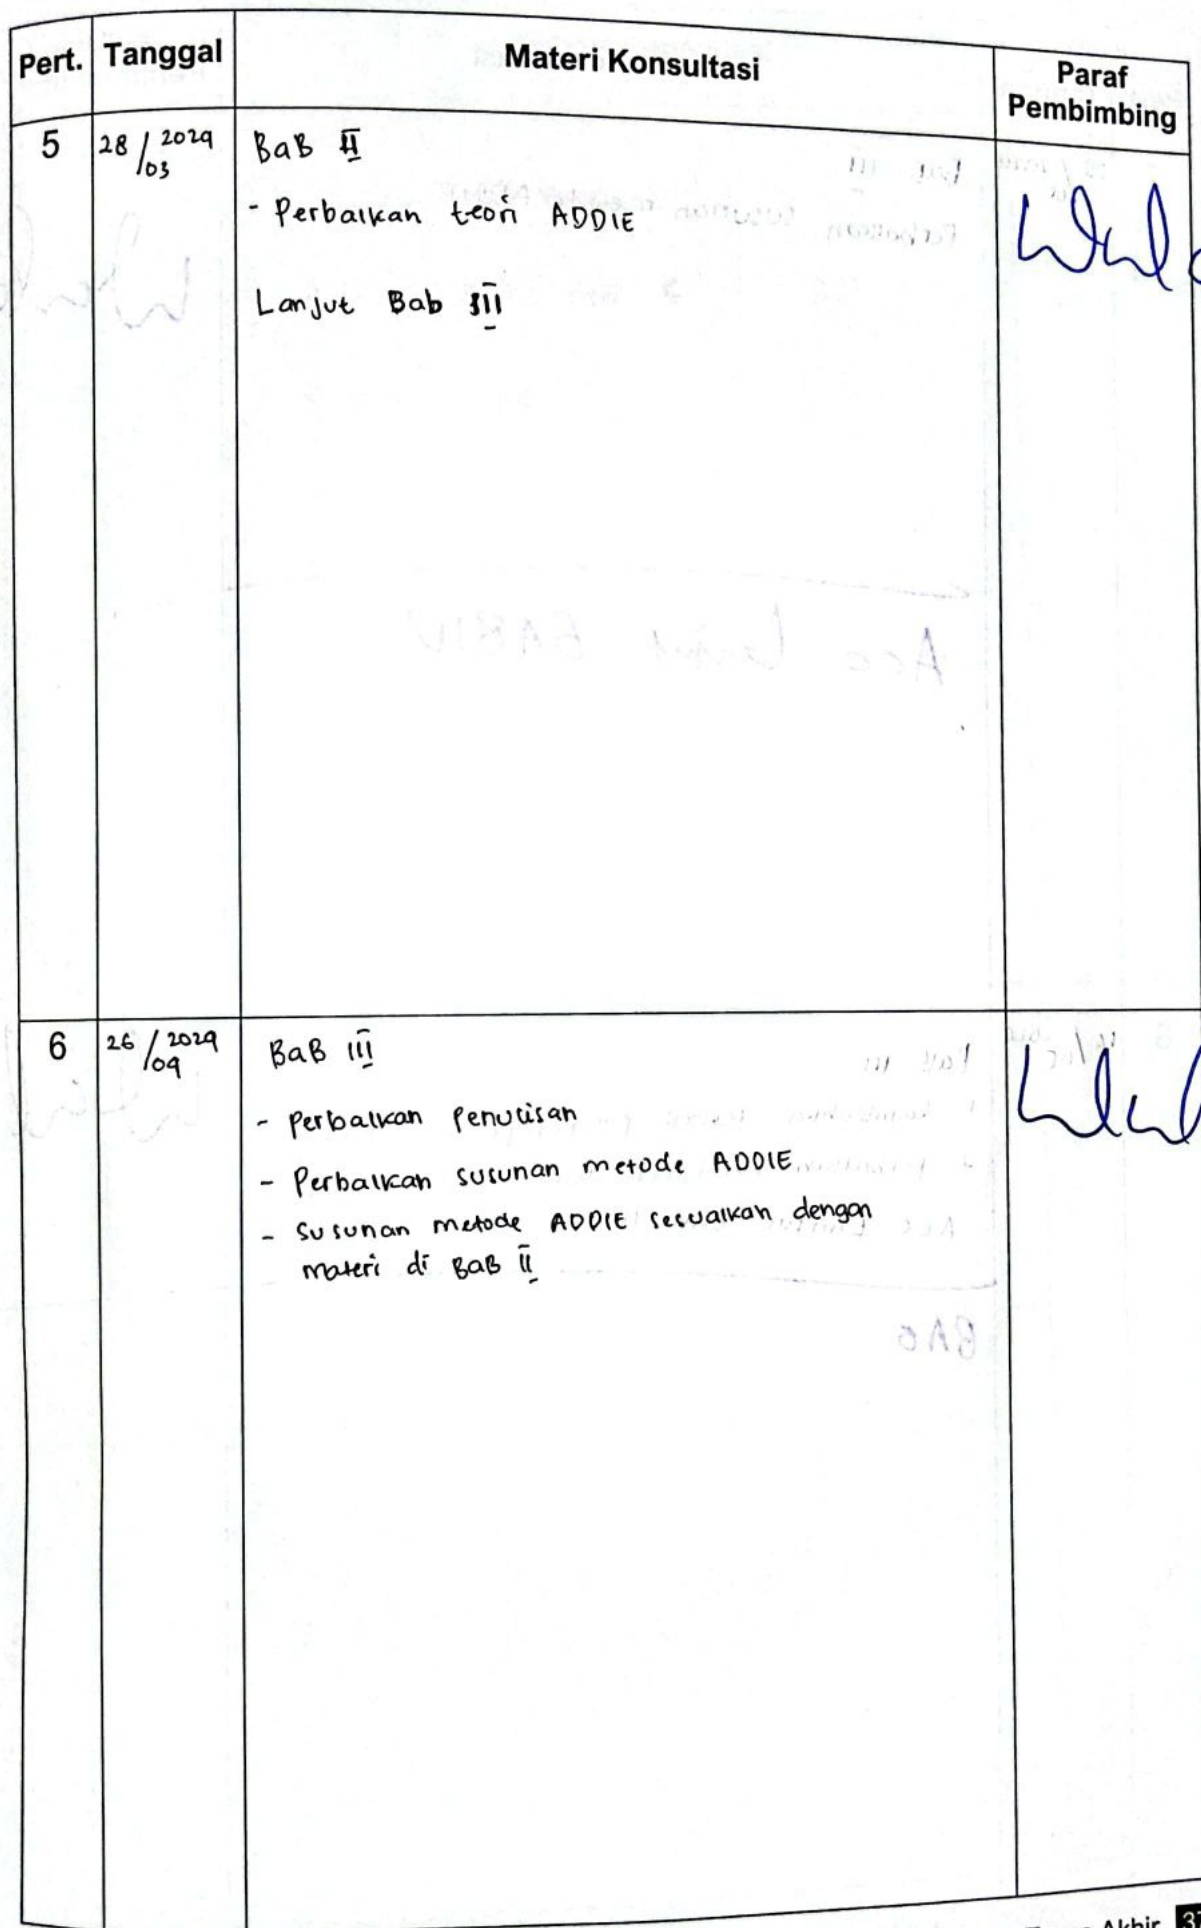 Pert. Tanggal Materi Konsultasi Paraf Pembimbing
5 28/03 2024 BaB II
- Perbaikan teori ADDIE
Lanjut Bab III
6 26/04 2024 BaB III
- Perbaikan Penulisan
- Perbaikan susunan metode ADDIE
- Susunan metode ADDIE sesuaikan dengan
materi di BaB II
Akhir